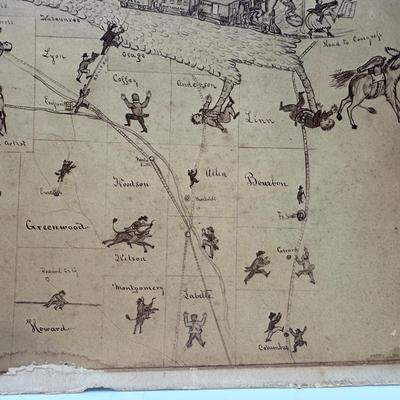 Wabaunsee
Lyon
Osage
Coffey
Anderson
Linn
Road to Congress
Emporia
Artist
Woodson
Allen
Bourbon
Humboldt
Ft. Scott
Eureka
Greenwood
Wilson
Girard
Howard City
Montgomery
Labette
Howard
Columbus